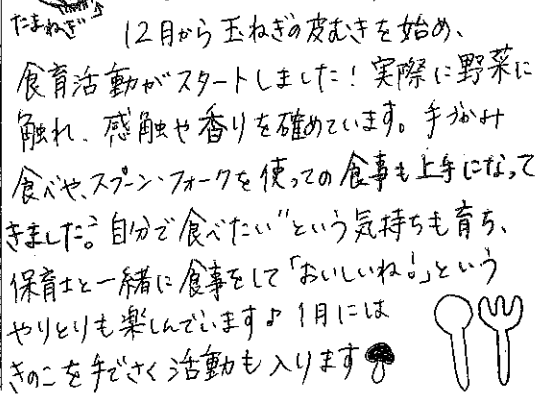 たまねぎ
12月から玉ねぎの皮むきを始め、
食育活動がスタートしました！実際に野菜に
触れ、感触や香りを確めています。手づかみ
食べや、スプーン・フォークを使っての食事も上手になって
きました。"自分で食べたい"という気持ちも育ち、
保育士と一緒に食事をして「おいしいね！」という
やりとりも楽しんでいます♪1月には
きのこを手でさく活動も入ります